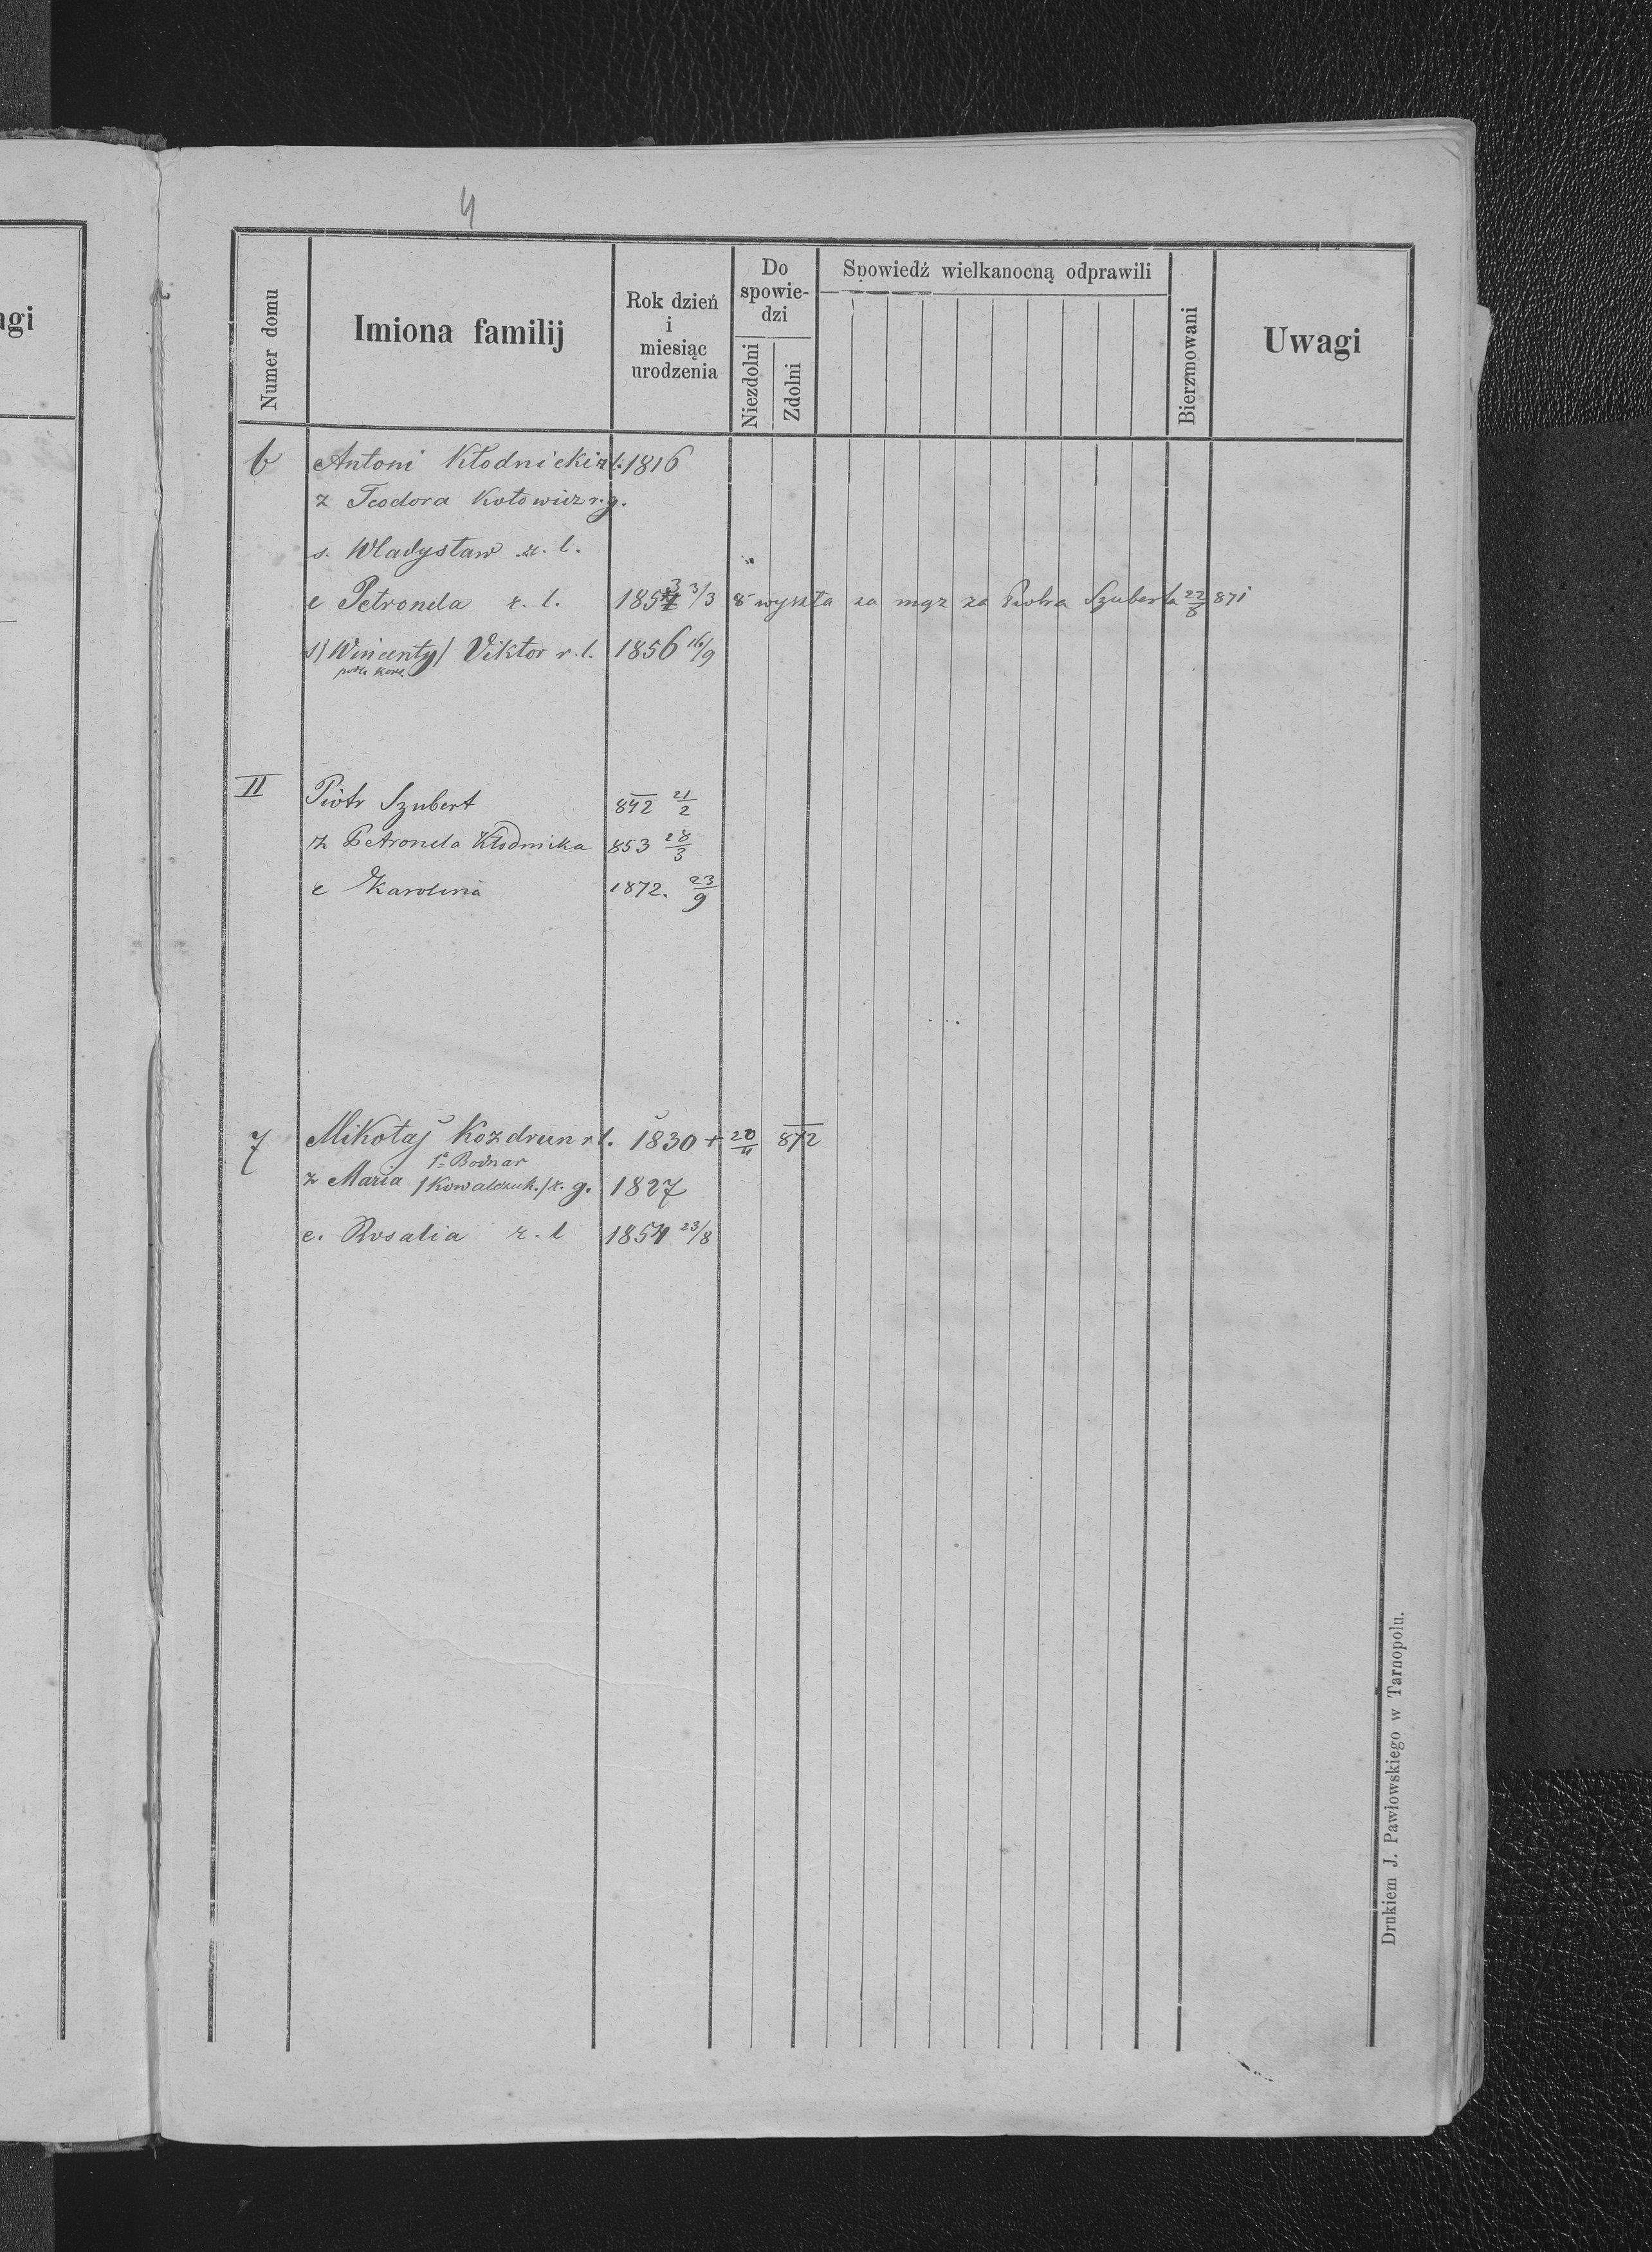 agi
4
Numer domu
Imiona familij
Rok dzień
i
miesiąc
urodzenia
Do
spowie-
dzi
Niezdolni
Zdolni
Spowiedź wielkanocną odprawili
Bierzmowani
Uwagi
6 Antoni Kłodnicki r. l. 1816
z Teodora Kotowicz r. g.
s. Władysław r. l.
c Petronela r. l. 1853 3/3 wyszła za mąz za Piotra Szuberta 22/8 871
s) Wincenty) Viktor r. l. 1856 16/9
II Piotr Szubert 842 21/2
z Petronela Kłodnika 853 28/3
c Karolina 1872. 23/9
7 Mikołaj Kozdrun r l. 1830 + 20/4 872
Bodnar
z Maria /Kowalczuk./ r. g. 1827
c. Rosalia r. l 1854 23/8
Drukiem J. Pawłowskiego w Tarnopolu.